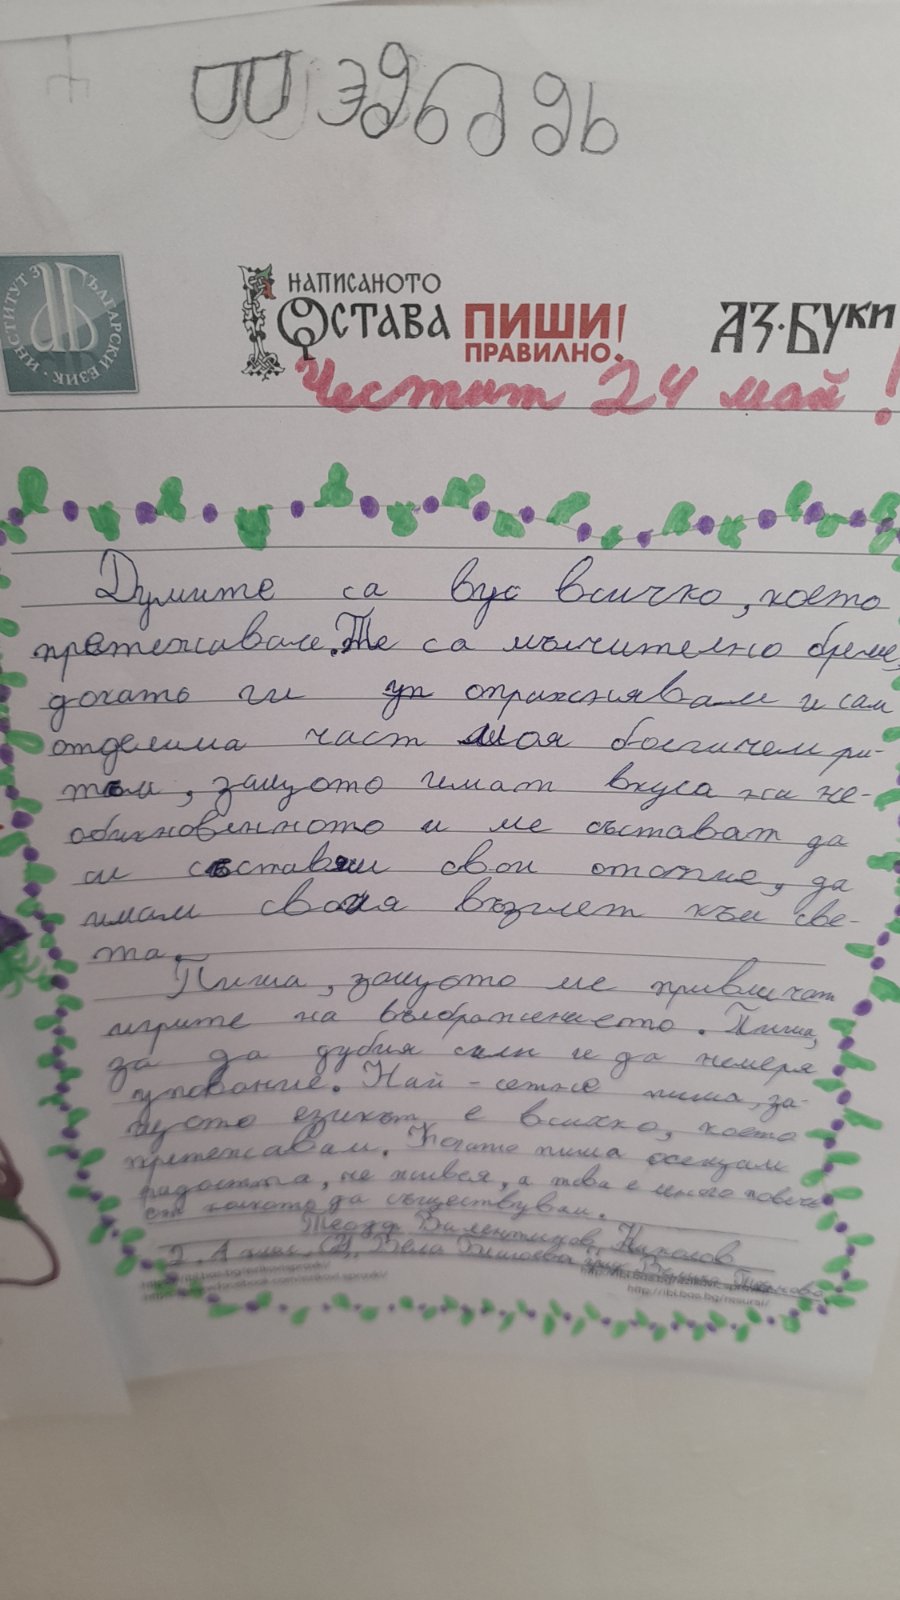 ИНСТИТУТ ЗА БЪЛГАРСКИ ЕЗИК
НАПИСАНОТО
ОСТАВА ПИШИ!
ПРАВИЛНО.
АЗ·БУКИ
Честит 24 май!
Думите са вус всичко, което
притежаваме. Те са мъчително бреме,
догато ги упражнявам и сам
отделима част моя богичем ри-
том, защото имат вкуса на не-
обикновенното и ме съставят да
си съставям свои, да
имам своя възглет към све-
та.
Пиша, защото ме привличат
игрите на въображението. Пиша,
за да дубия сили и да намеря
упование. Най-сетне пиша, за-
щото езикът е всичко, което
притежавам. Когато пиша осещам
радостта, не живея, а това е много повече
от колкото да съществувам.
Валентинов Николов
http://ibl.bas.bg/